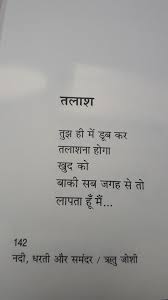 तलाश
तुझ ही में डूब कर
तलाशना होगा
खुद को
बाकी सब जगह से तो
लापता हूँ मैं...
142
नदी, धरती और समंदर / ऋतु जोशी